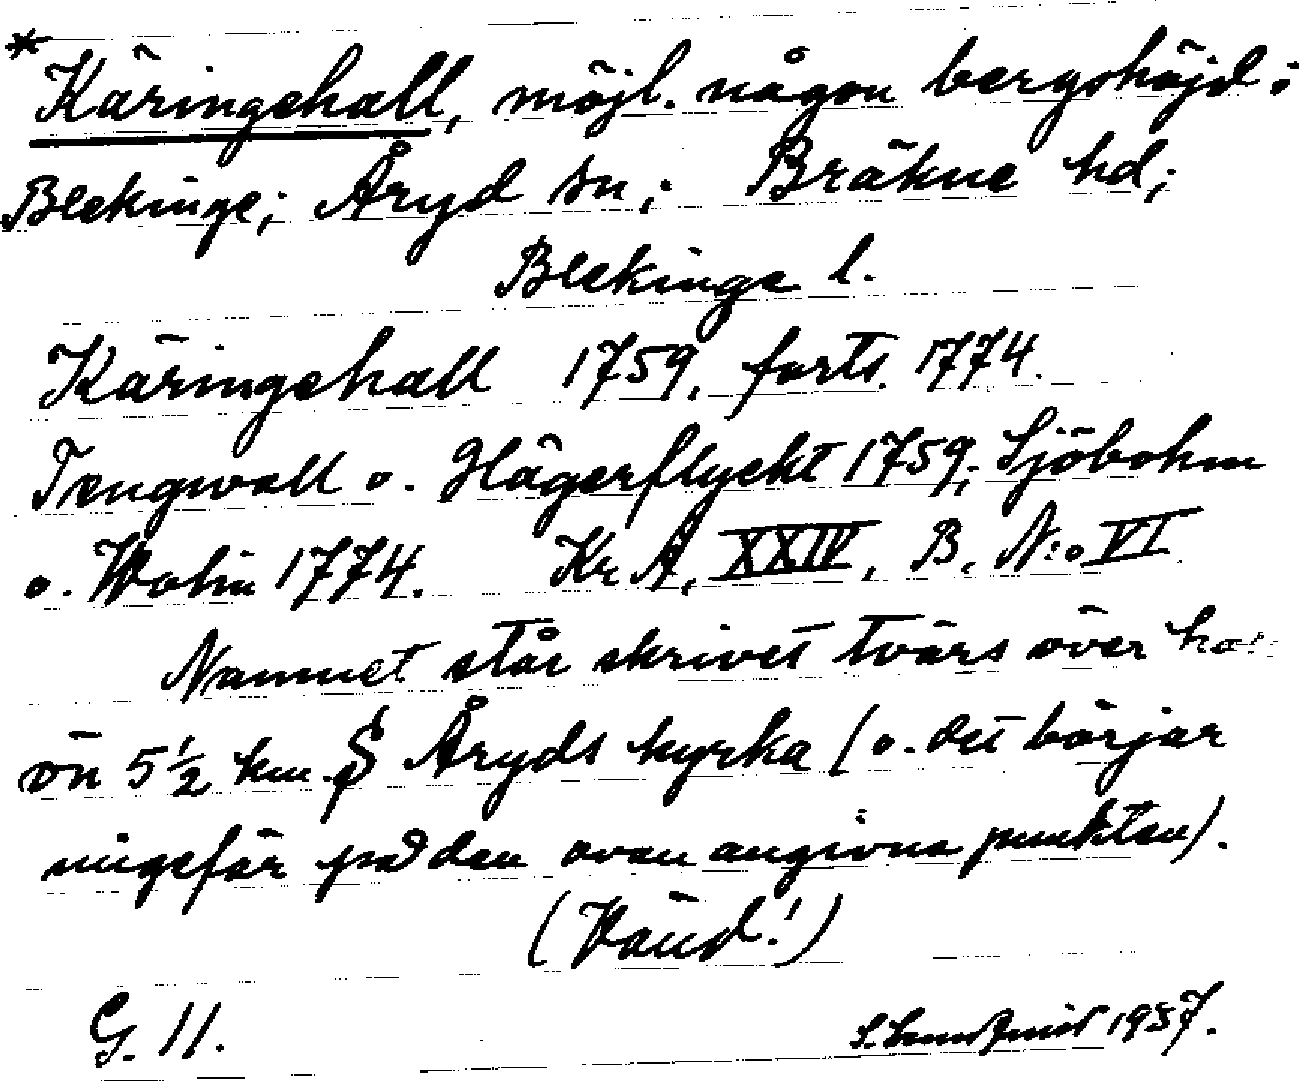 *Käringehall, möjl. någon bergshöjd i
Blekinge; Åryd sn; Bräkne hd;
Blekinge l.
Käringehall 1759, forts. 1774.
Tengwall o. Hägerflycht 1759; Sjöbohm
o. Wolin 1774. Kr. A, XXIV, B, N:o VI
Namnet står skrivet tvärs över
ön 5 1/2 km. S Åryds kyrka (o. det börjar
ungefär på den ovan angivna punkten).
(Vänd!)
G. 11. 1937.